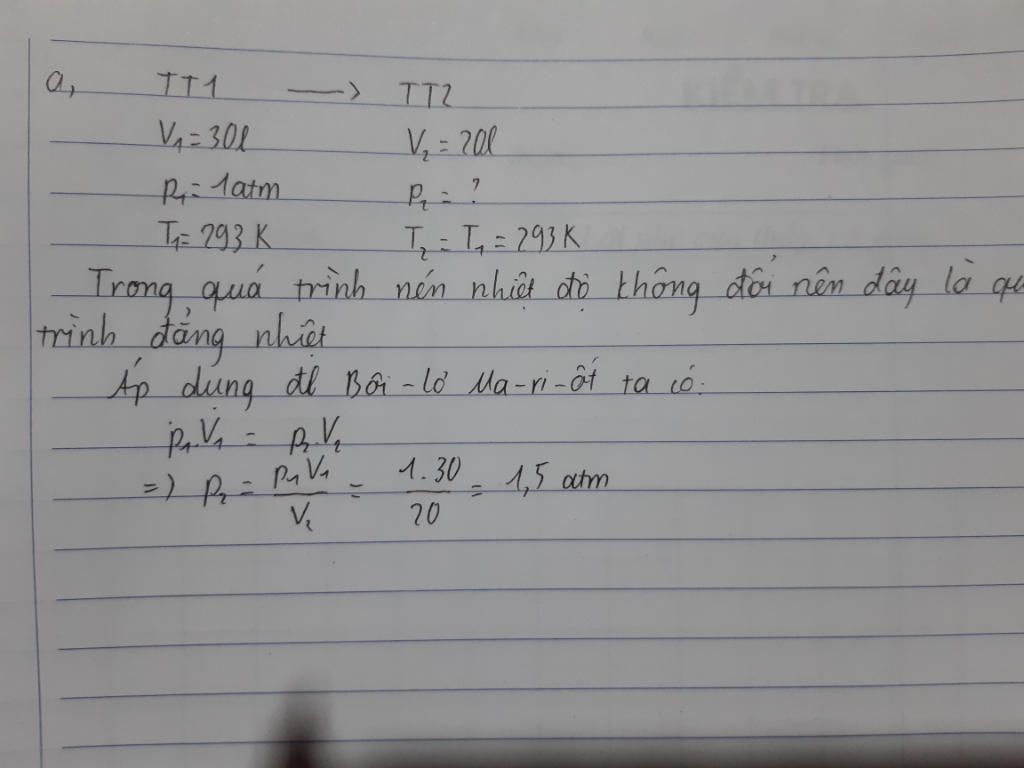 a, TT1 → TT2
V₁ = 30l V₂ = 20l
p₁ = 1atm p₂ = ?
T₁ = 293 K T₂ = T₁ = 293 K
Trong quá trình nén nhiệt độ không đổi nên đây là qu
trình đẳng nhiệt
Áp dụng đl Bôi-lơ Ma-ri-ốt ta có:
p₁.V₁ = p₂.V₂
=> p₂ = p₁V₁/V₂ = 1.30/20 = 1,5 atm
KIỂM TRA